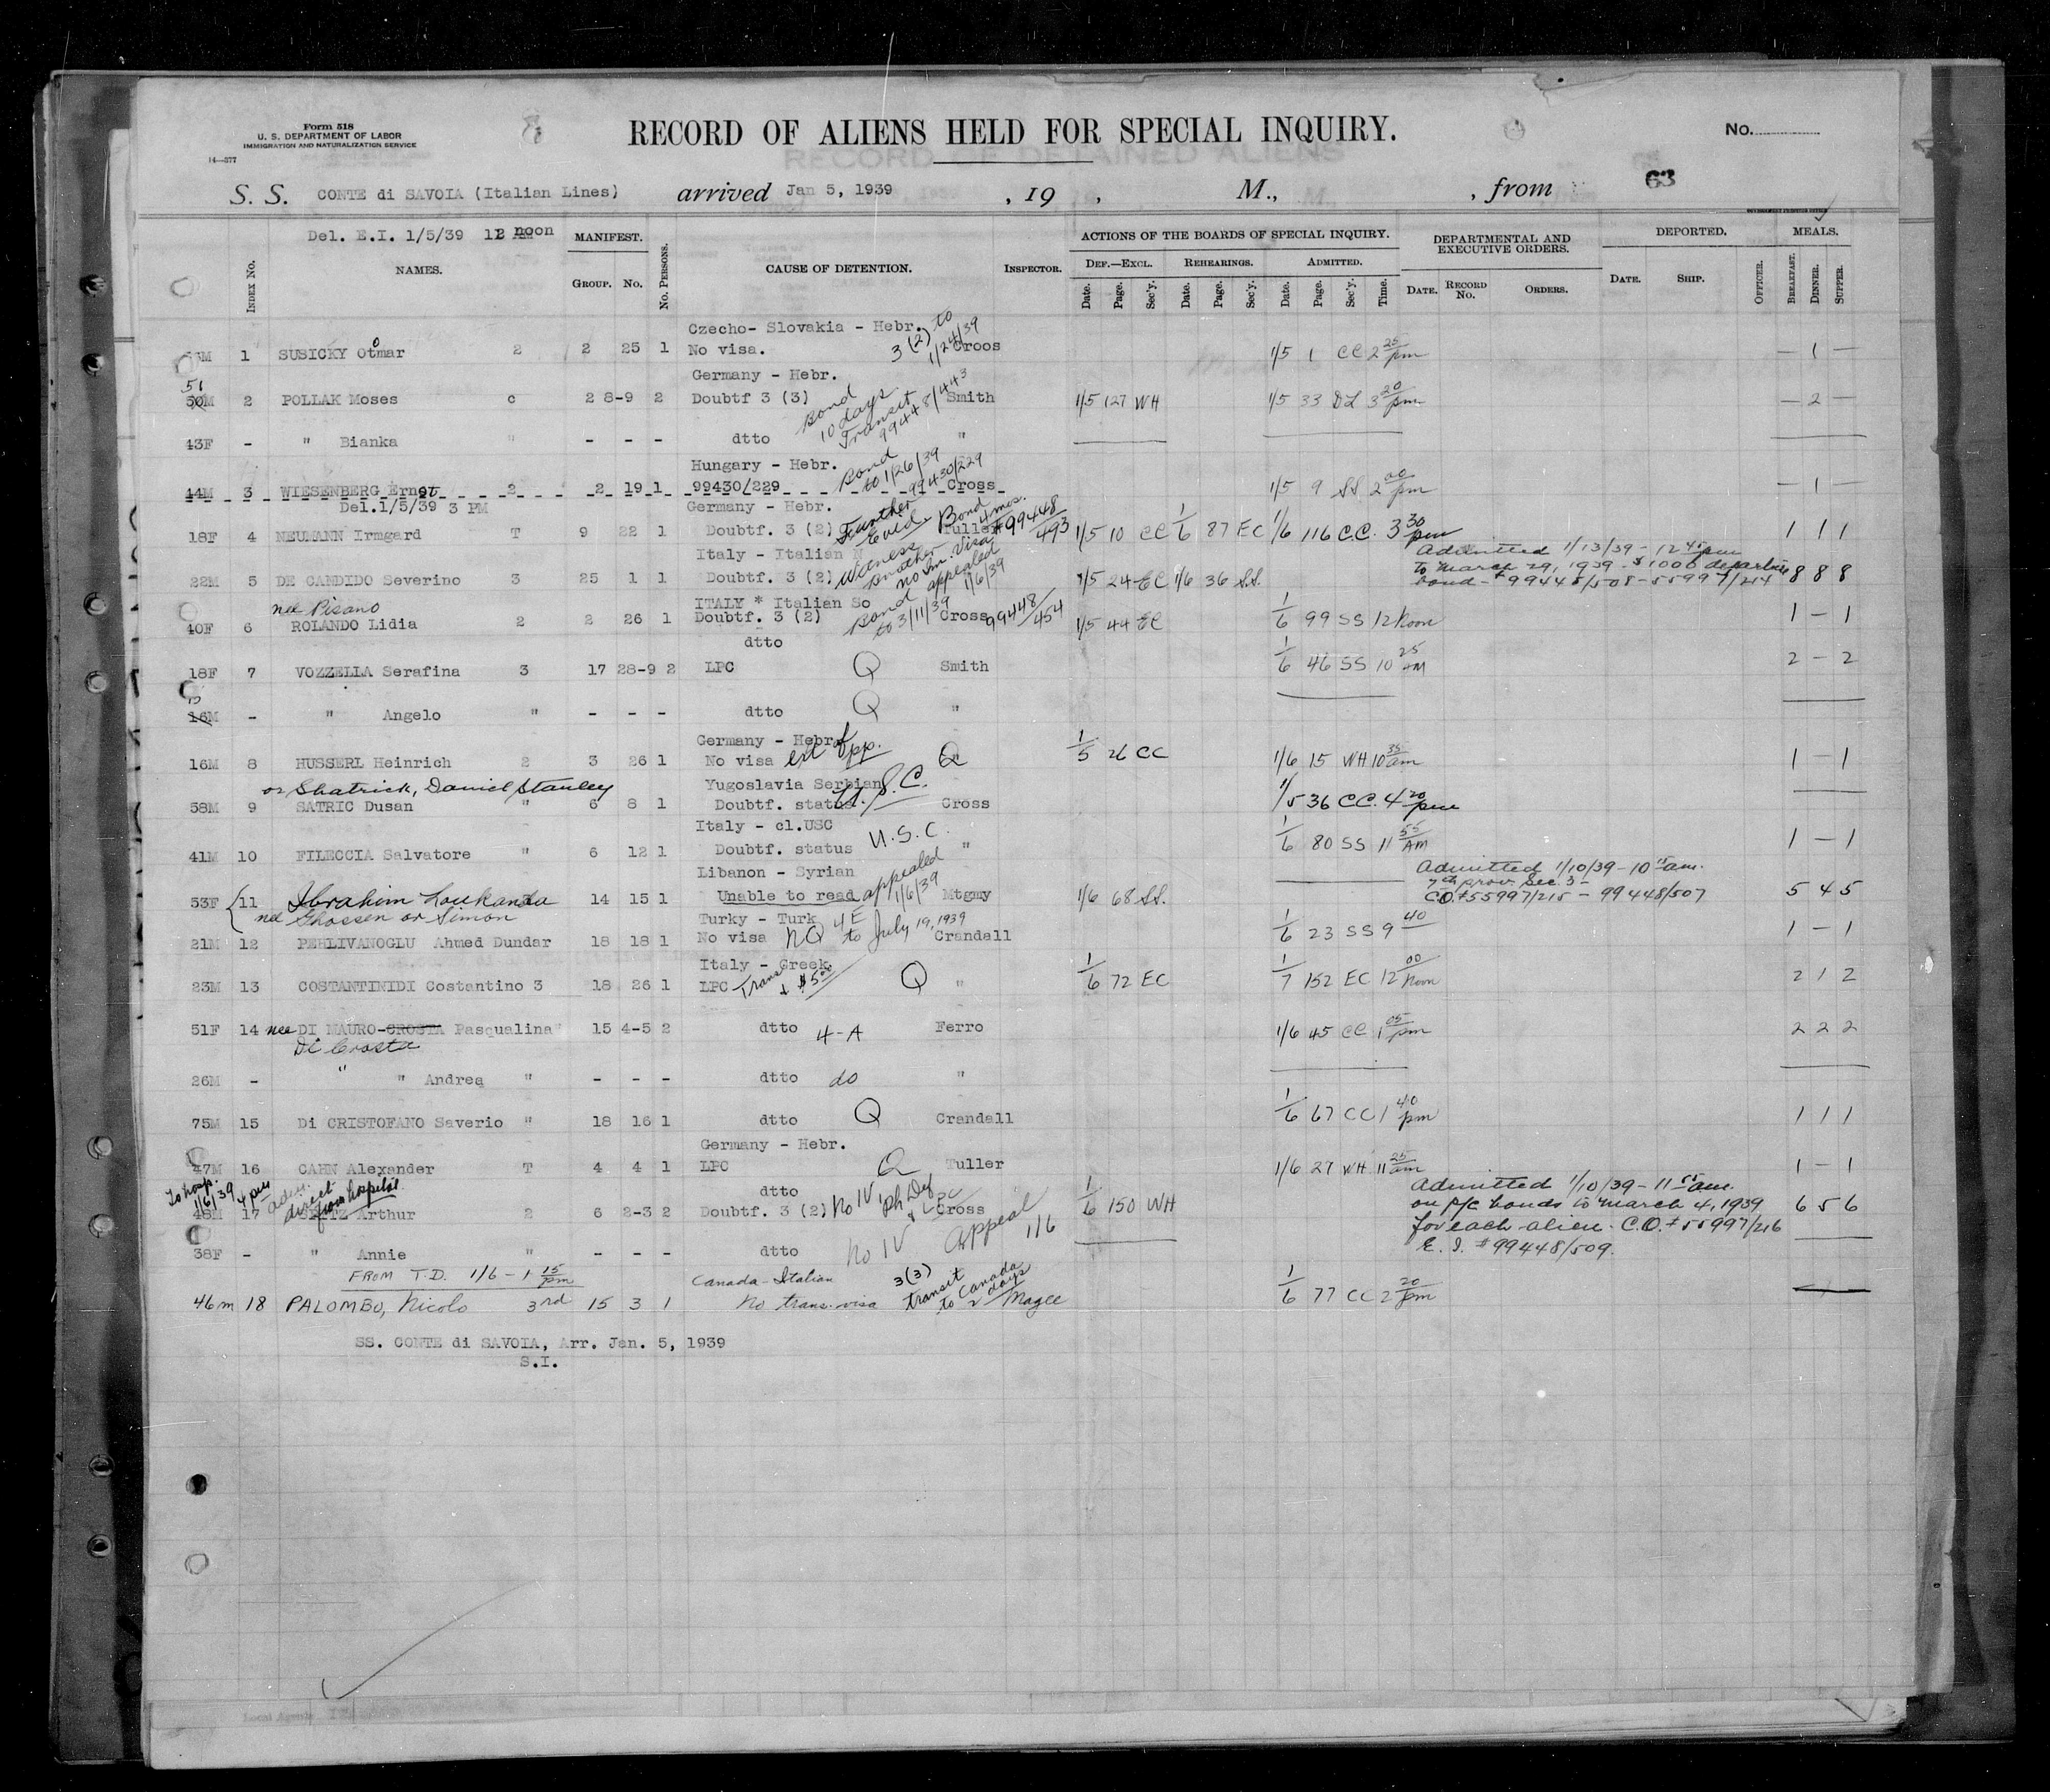 Form 518
U. S. DEPARTMENT OF LABOR
IMMIGRATION AND NATURALIZATION SERVICE
14—377
RECORD OF ALIENS HELD FOR SPECIAL INQUIRY.
No.
63
S. S. CONTE di SAVOIA (Italian Lines) arrived Jan 5, 1939 , 19 , M., , from
Del. E.I. 1/5/39 12 noon
MANIFEST.
ACTIONS OF THE BOARDS OF SPECIAL INQUIRY.
DEPARTMENTAL AND EXECUTIVE ORDERS.
DEPORTED.
MEALS.
INDEX No. NAMES. GROUP. No. No. PERSONS. CAUSE OF DETENTION. INSPECTOR.
DEF.—EXCL. REHEARINGS. ADMITTED.
Date. Page. Sec'y. Date. Page. Sec'y. Date. Page. Sec'y. Time. DATE. RECORD No. ORDERS. DATE. SHIP. OFFICER. BREAKFAST. DINNER. SUPPER.
Czecho- Slovakia - Hebr.
1 SUSICKY Otmar 2 2 25 1 No visa. 3 (2) to 1/24/39 Croos 1/5 1 CC 2 25 pm — 1 —
Germany - Hebr.
51
50M 2 POLLAK Moses c 2 8-9 2 Doubtf 3 (3) Bond 10 days Transit 99448/443 Smith 1/5 127 WH 1/5 33 DL 3 20 pm — 2 —
43F - " Bianka " - - - dtto "
Hungary - Hebr.
44M 3 WIESENBERG Ernst 2 2 19 1 99430/229 Bond to 1/26/39 99430/229 Cross 1/5 9 SS 2 00 pm — 1 —
Del.1/5/39 3 PM Germany - Hebr.
18F 4 NEUMANN Irmgard T 9 22 1 Doubtf. 3 (2) Further Evid. Bond 4 mos. Tuller #99448/493 1/5 10 CC 1/6 87 EC 1/6 116 CC. 3 30 pm 1 1 1
Italy - Italian N
22M 5 DE CANDIDO Severino 3 25 1 1 Doubtf. 3 (2) Witness Another no Im. Visa appealed 1/6/39 1/5 24 EC 1/6 36 SS. 8 8 8
Admitted 1/13/39 - 12 45 pm
to March 29, 1939 - $1000 departure
bond - #99448/508 - 55997/214
nee Pisano ITALY * Italian So
40F 6 ROLANDO Lidia 2 2 26 1 Doubtf. 3 (2) Bond to 3/11/39 Cross 99448/454 1/5 44 EC 1/6 99 SS 12 Noon 1 — 1
dtto
18F 7 VOZZELLA Serafina 3 17 28-9 2 LPC Q Smith 1/6 46 SS 10 25 AM 2 — 2
16M - " Angelo " - - - dtto Q "
Germany - Hebr.
16M 8 HUSSERL Heinrich 2 3 26 1 No visa Q 1/5 26 CC 1/6 15 WH 10 35 am 1 — 1
or Shatrick, Daniel Stanley Yugoslavia Serbian
58M 9 SATRIC Dusan " 6 8 1 Doubtf. status U.S.C. Cross 1/5 36 CC. 4 20 pm
Italy - cl.USC
41M 10 FILECCIA Salvatore " 6 12 1 Doubtf. status U.S.C. " 1/6 80 SS 11 55 AM 1 — 1
Libanon - Syrian
53F 11 Ibrahim Loukanda 14 15 1 Unable to read appealed 1/6/39 Mtgmy 1/6 68 SS. 5 4 5
nee Ghossen or Simon
Admitted 1/10/39 - 10 15 am.
7th prov Sec. 3 -
C.O.#55997/215 - 99448/507
Turky - Turk
21M 12 PEHLIVANOGLU Ahmed Dundar 18 18 1 No visa NQ 4E to July 19, 1939 Crandall 1/6 23 SS 9 40 1 — 1
Italy - Greek
23M 13 COSTANTINIDI Costantino 3 18 26 1 LPC Trans & $500 Q " 1/6 72 EC 1/7 152 EC 12 00 Noon 2 1 2
51F 14 nee DI MAURO-CROSTA Pasqualina " 15 4-5 2 dtto 4-A Ferro 1/6 45 CC 1 05 pm 2 2 2
Di Crosta
26M - " " Andrea " - - - dtto do "
75M 15 Di CRISTOFANO Saverio " 18 16 1 dtto Q Crandall 1/6 67 CC 1 40 pm 1 1 1
Germany - Hebr.
47M 16 CAHN Alexander T 4 4 1 LPC Q Tuller 1/6 27 WH 11 25 am 1 — 1
To hosp. 1/6/39 4 pm
direct from hospital
dtto
48M 17 Arthur 2 6 2-3 2 Doubtf. 3 (2) No IV Ph Def & LPC Cross 1/6 150 WH 6 5 6
Admitted 1/10/39 - 11 55 am.
on p/c bonds to March 4, 1939
for each alien - C.O. #55997/216
E. I. #99448/509.
38F - " Annie " - - - dtto No IV Appeal 1/6
FROM T.D. 1/6 - 1 15 pm Canada - Italian
46m 18 PALOMBO, Nicolo 3rd 15 3 1 No trans. visa 3(3) transit to Canada 2 days Magee 1/6 77 CC 2 20 pm
SS. CONTE di SAVOIA, Arr. Jan. 5, 1939
S.I.